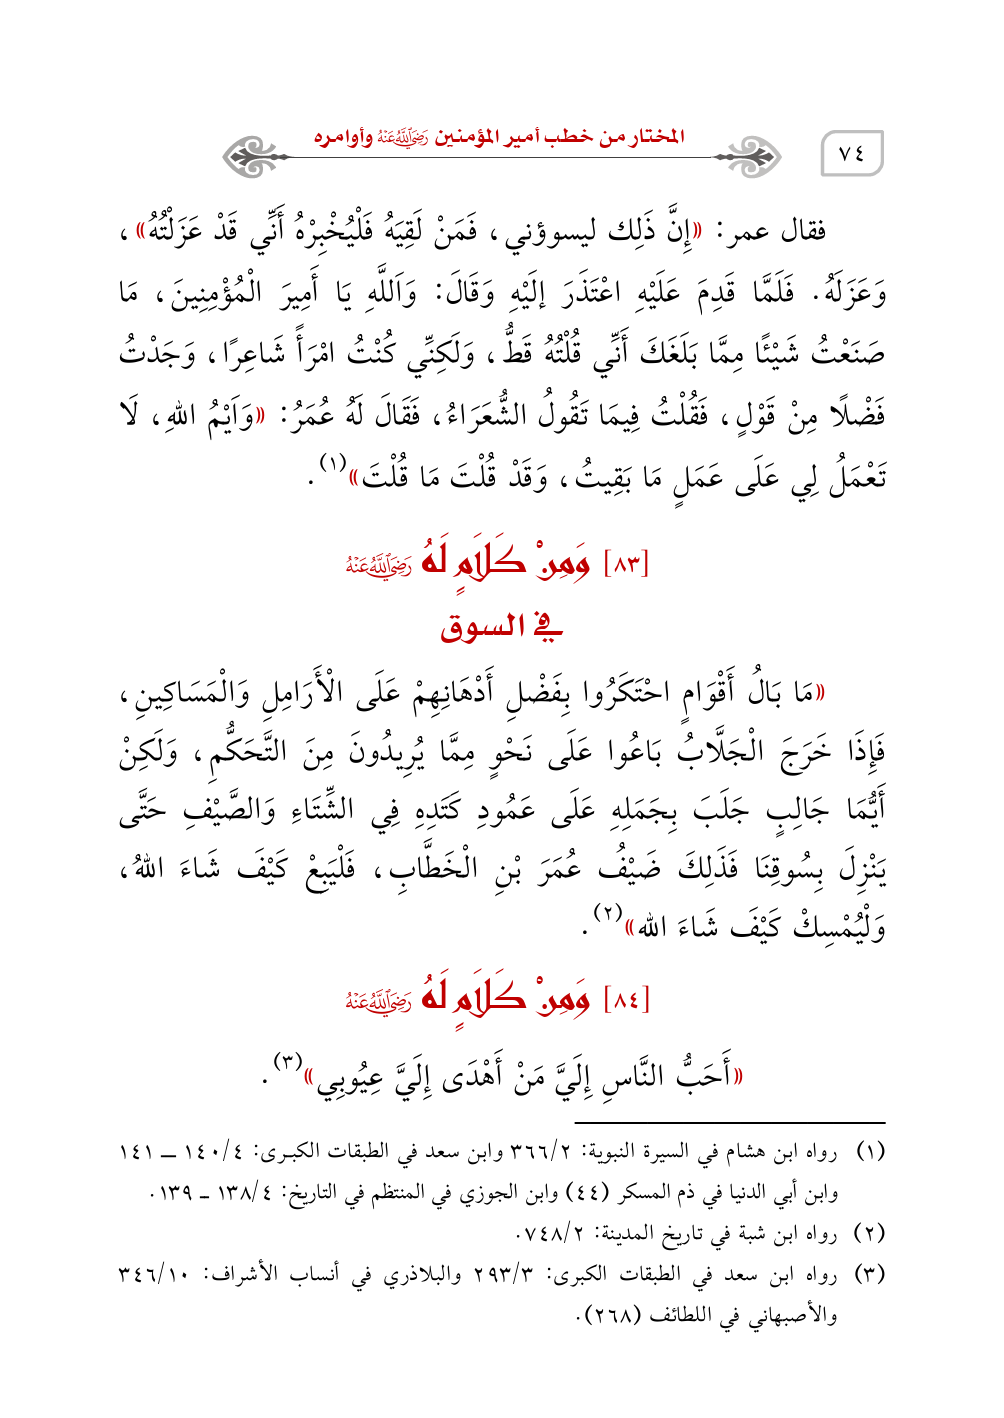 ٧٤
المختار من خطب أمير المؤمنين رَضِيَ اللَّهُ عَنْهُ وأوامره
فقال عمر: «إِنَّ ذَلِك ليسوؤني، فَمَنْ لَقِيَهُ فَلْيُخْبِرْهُ أَنِّي قَدْ عَزَلْتُهُ»،
وَعَزَلَهُ. فَلَمَّا قَدِمَ عَلَيْهِ اعْتَذَرَ إلَيْهِ وَقَالَ: وَاَللَّهِ يَا أَمِيرَ الْمُؤْمِنِينَ، مَا
صَنَعْتُ شَيْئًا مِمَّا بَلَغَكَ أَنِّي قُلْتُهُ قَطُّ، وَلَكِنِّي كُنْتُ امْرَأً شَاعِرًا، وَجَدْتُ
فَضْلًا مِنْ قَوْلٍ، فَقُلْتُ فِيمَا تَقُولُ الشُّعَرَاءُ، فَقَالَ لَهُ عُمَرُ: «وَاَيْمُ اللهِ، لَا
تَعْمَلُ لِي عَلَى عَمَلٍ مَا بَقِيتُ، وَقَدْ قُلْتَ مَا قُلْتَ»(١).
[٨٣] وَمِنْ كَلَامٍ لَهُ رَضِيَ اللَّهُ عَنْهُ
في السوق
«مَا بَالُ أَقْوَامٍ احْتَكَرُوا بِفَضْلِ أَدْهَانِهِمْ عَلَى الْأَرَامِلِ وَالْمَسَاكِينِ،
فَإِذَا خَرَجَ الْجَلَّابُ بَاعُوا عَلَى نَحْوٍ مِمَّا يُرِيدُونَ مِنَ التَّحَكُّمِ، وَلَكِنْ
أَيُّمَا جَالِبٍ جَلَبَ بِجَمَلِهِ عَلَى عَمُودِ كَتَدِهِ فِي الشِّتَاءِ وَالصَّيْفِ حَتَّى
يَنْزِلَ بِسُوقِنَا فَذَلِكَ ضَيْفُ عُمَرَ بْنِ الْخَطَّابِ، فَلْيَبِعْ كَيْفَ شَاءَ اللهُ،
وَلْيُمْسِكْ كَيْفَ شَاءَ الله»(٢).
[٨٤] وَمِنْ كَلَامٍ لَهُ رَضِيَ اللَّهُ عَنْهُ
«أَحَبُّ النَّاسِ إِلَيَّ مَنْ أَهْدَى إِلَيَّ عِيُوبِي»(٣).
(١) رواه ابن هشام في السيرة النبوية: ٣٦٦/٢ وابن سعد في الطبقات الكبرى: ١٤٠/٤ ــ ١٤١
وابن أبي الدنيا في ذم المسكر (٤٤) وابن الجوزي في المنتظم في التاريخ: ١٣٨/٤ ـ ١٣٩.
(٢) رواه ابن شبة في تاريخ المدينة: ٧٤٨/٢.
(٣) رواه ابن سعد في الطبقات الكبرى: ٢٩٣/٣ والبلاذري في أنساب الأشراف: ٣٤٦/١٠
والأصبهاني في اللطائف (٢٦٨).